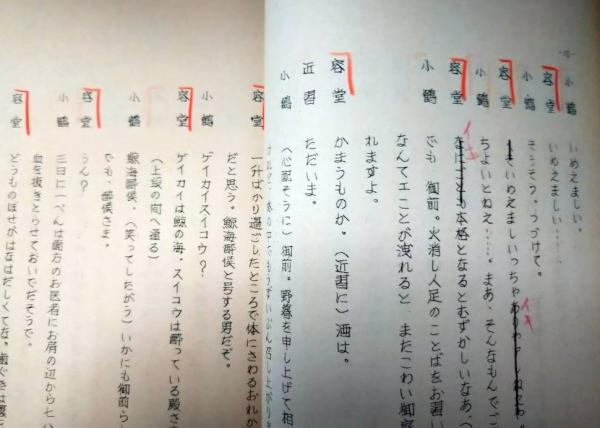 小鶴　いめえましい。
容堂　いめえましい。
小鶴　そうそう。つづけて。
容堂　いめえましいっちゃ
小鶴　ちょいとねえ……。まあ、そんなもんでご
容堂　本格となるとむずかしいなあ。
小鶴　でも　御前。火消し人足の　ことばをお習い
なんてエことが洩れると　またこわい御家
れますよ。
容堂　かまうものか。（近習に）酒は。
近習　ただいま。
小鶴　（心配そうに）御前。野暮を申し上げて相
容堂　一升ばかり過ごしたところで体にさわるおれか
だと思う。鯨海酔侯と号する男だぞ。
小鶴　ゲイカイスイコウ？
容堂　ゲイカイは鯨の海・スイコウは酔っている殿さ
（上段の向へ通る）
小鶴　鯨海酔侯、（笑ってしたがう）いかにも御前ら
でも、酔侯さま。
容堂　うん？
小鶴　三日に一ぺんは両方のお医者にお肩の辺から七八
血を抜きとらせておいでだそうで。
容堂　どうものぼせがはなはだしくてな。歯ぐきは